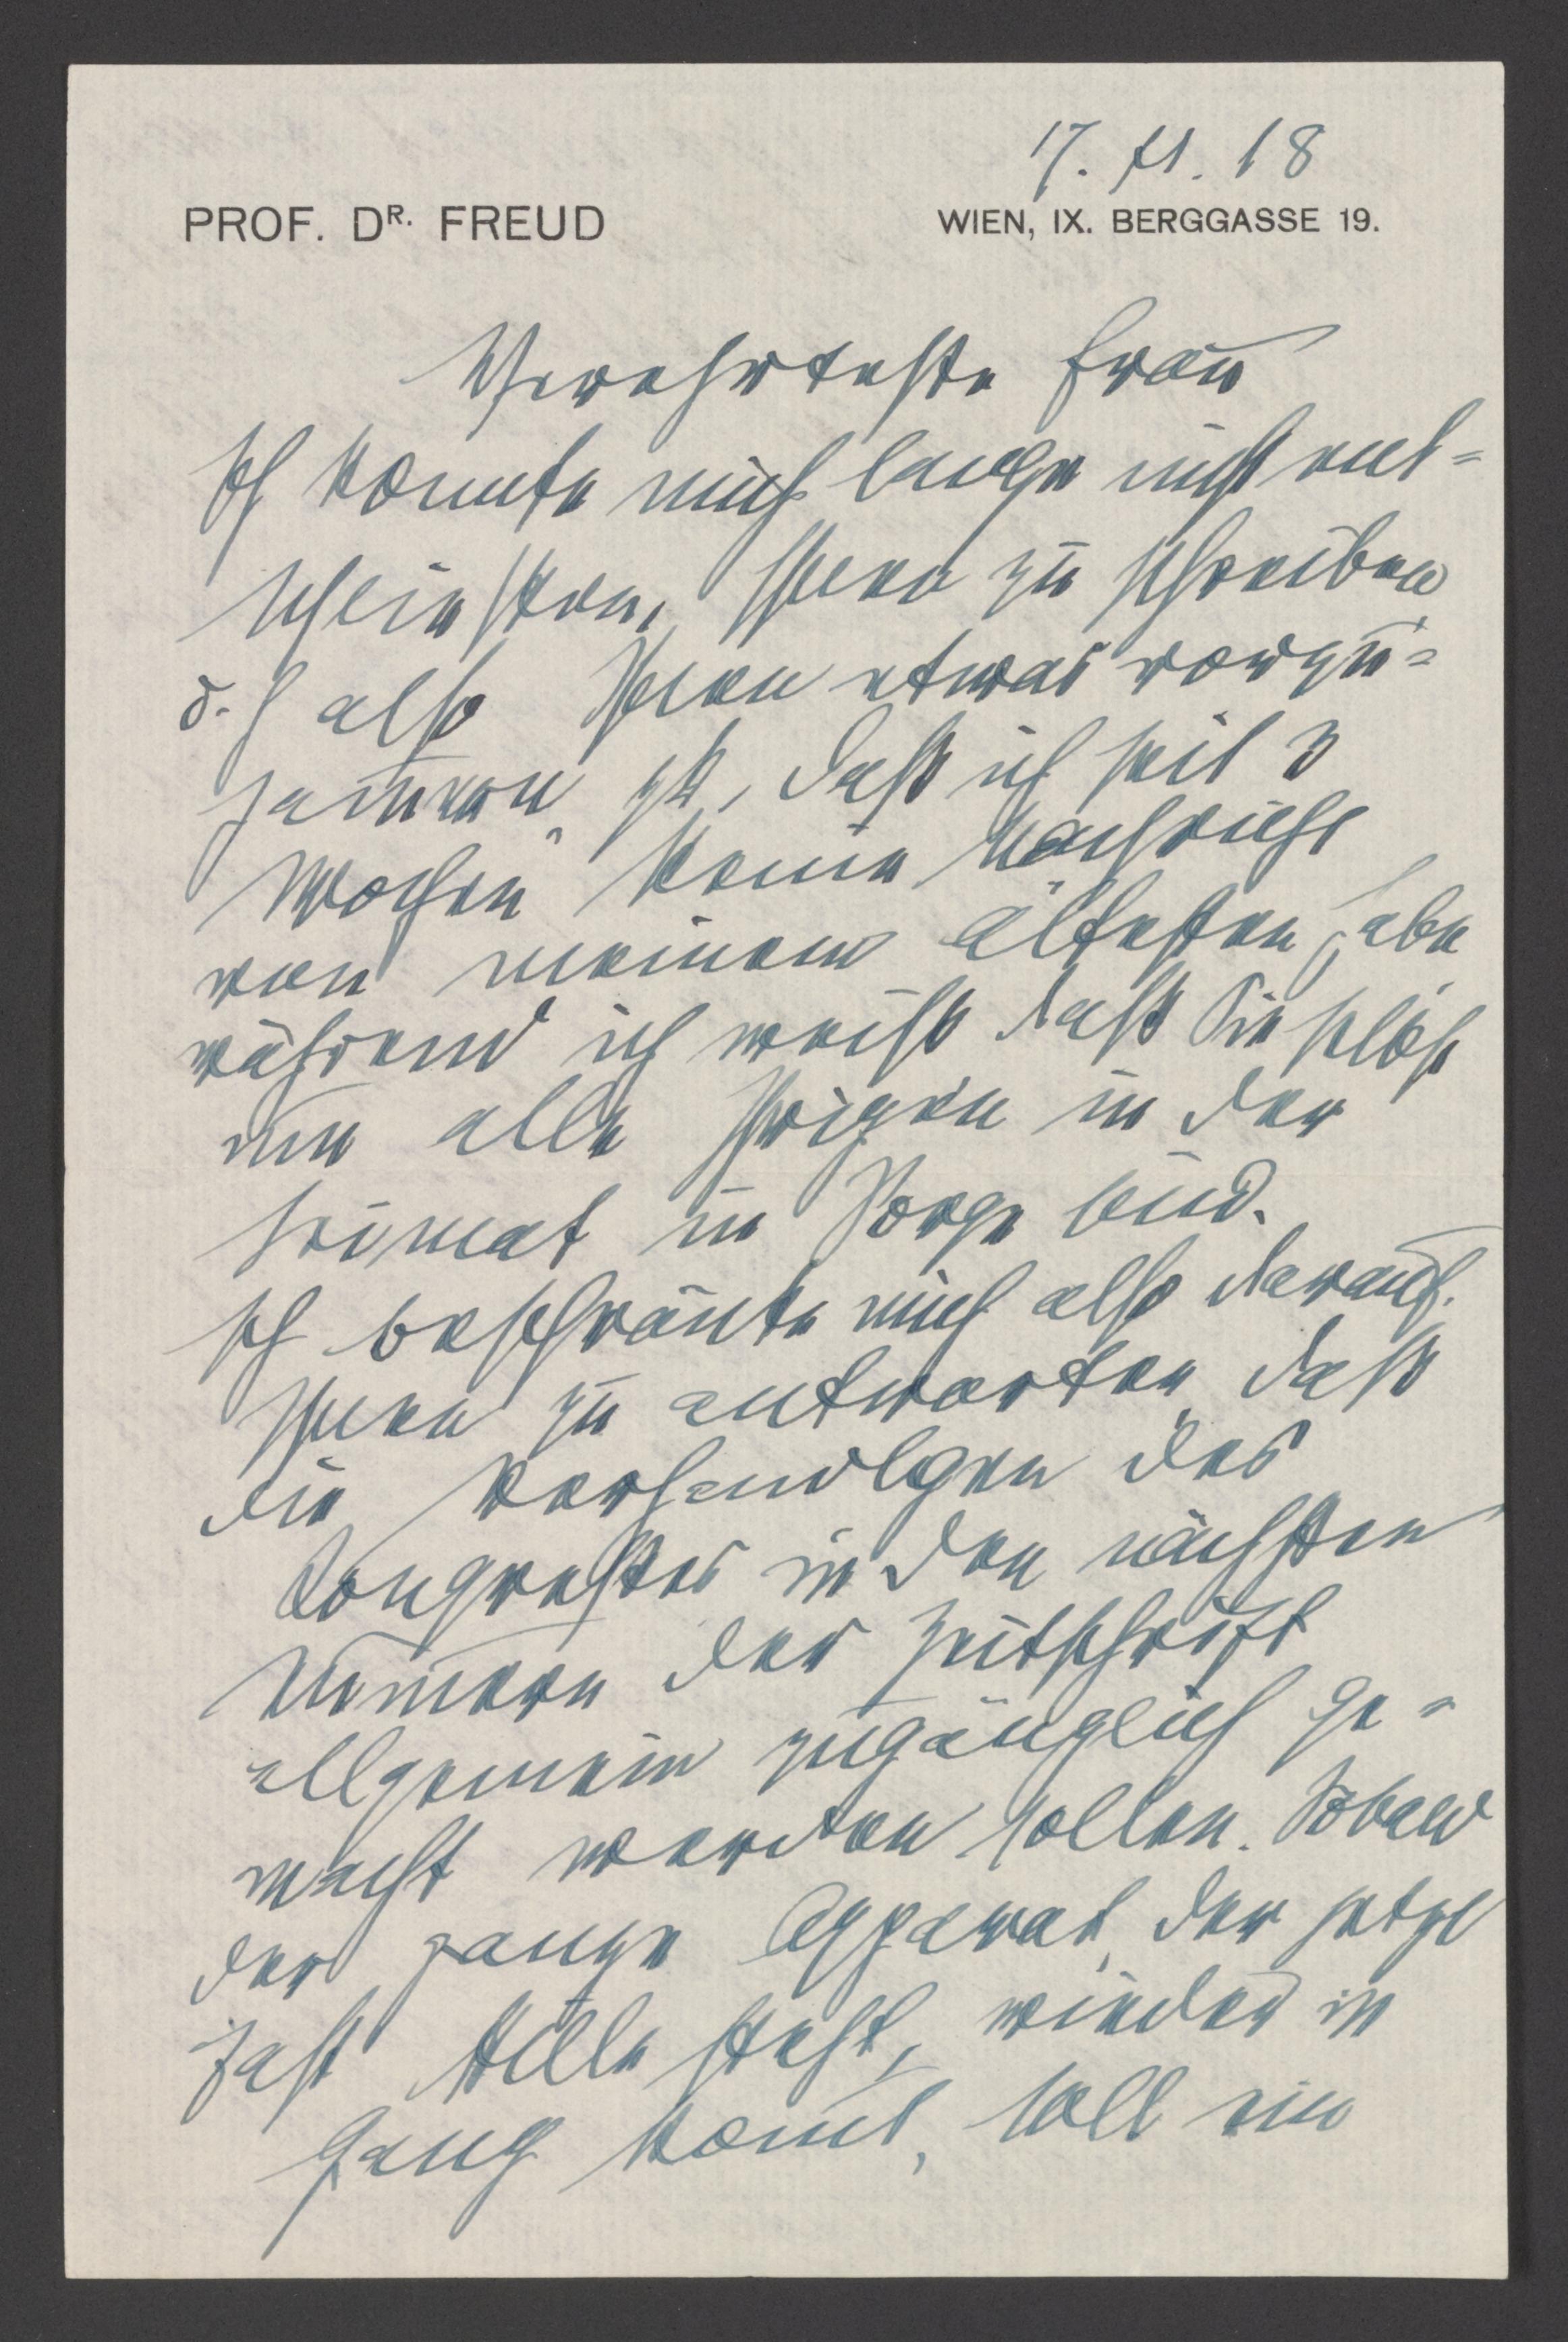 17. 11. 18
PROF. DR. FREUD
WIEN, IX. BERGGASSE 19.
Verehrteste Frau
Ich konnte mich lange nicht ent=
schließen, Ihnen zu schreiben
d. h also Ihnen etwas vorzu=
jam̄ern, daß ich seit 3
Wochen keine Nachricht
von meinem Ältesten habe
während ich weiß daß Sie selbst
um alle Ihrigen in der
Heimat in Sorge sind.
Ich beschränke mich also darauf.
Ihnen zu antworten, daß
die Verhandlgen des
Congresses in den nächsten
Num̄ern der Zeitschrift
allgemein zugänglich ge=
macht werden sollen. Sobald
der ganze Apparat, der jetzt
fast stille steht, wieder in
Gang kom̄t, soll ein